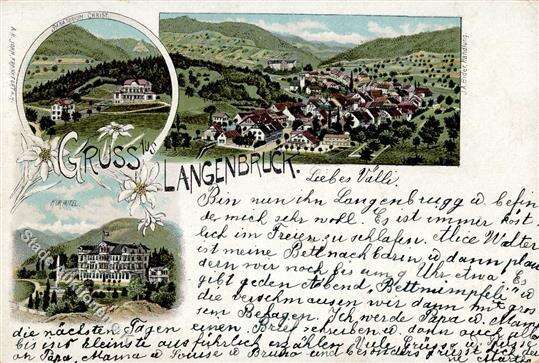 SANATORIUM CHRIST.
J. A. Bider, Handlung.
GRUSS AUS
LANGENBRUCK.
KURHOTEL
Liebes Välli.
Bin nun ihn Langenbrugg u. befin
de mich sehr woll. Es ist immer köst
lich im Freien zu schlafen. Alice Walter
ist meine Bettnachbarin u. dann plau
dern wir noch bis um 9 Uhr etwa. Es
gibt jeden Abend „Bettmümpfeli" u
die verschmausen wir dann mit gros
sem Behagen. Ich werde Papa er Mama
die nächsten Tagen einen Brief schreiben u. dann auch alles
bis ins kleinste ausführlich erzählen. Viele Grüsse u. Küsse
an Papa, Mama u Louise u Bruno und besonders